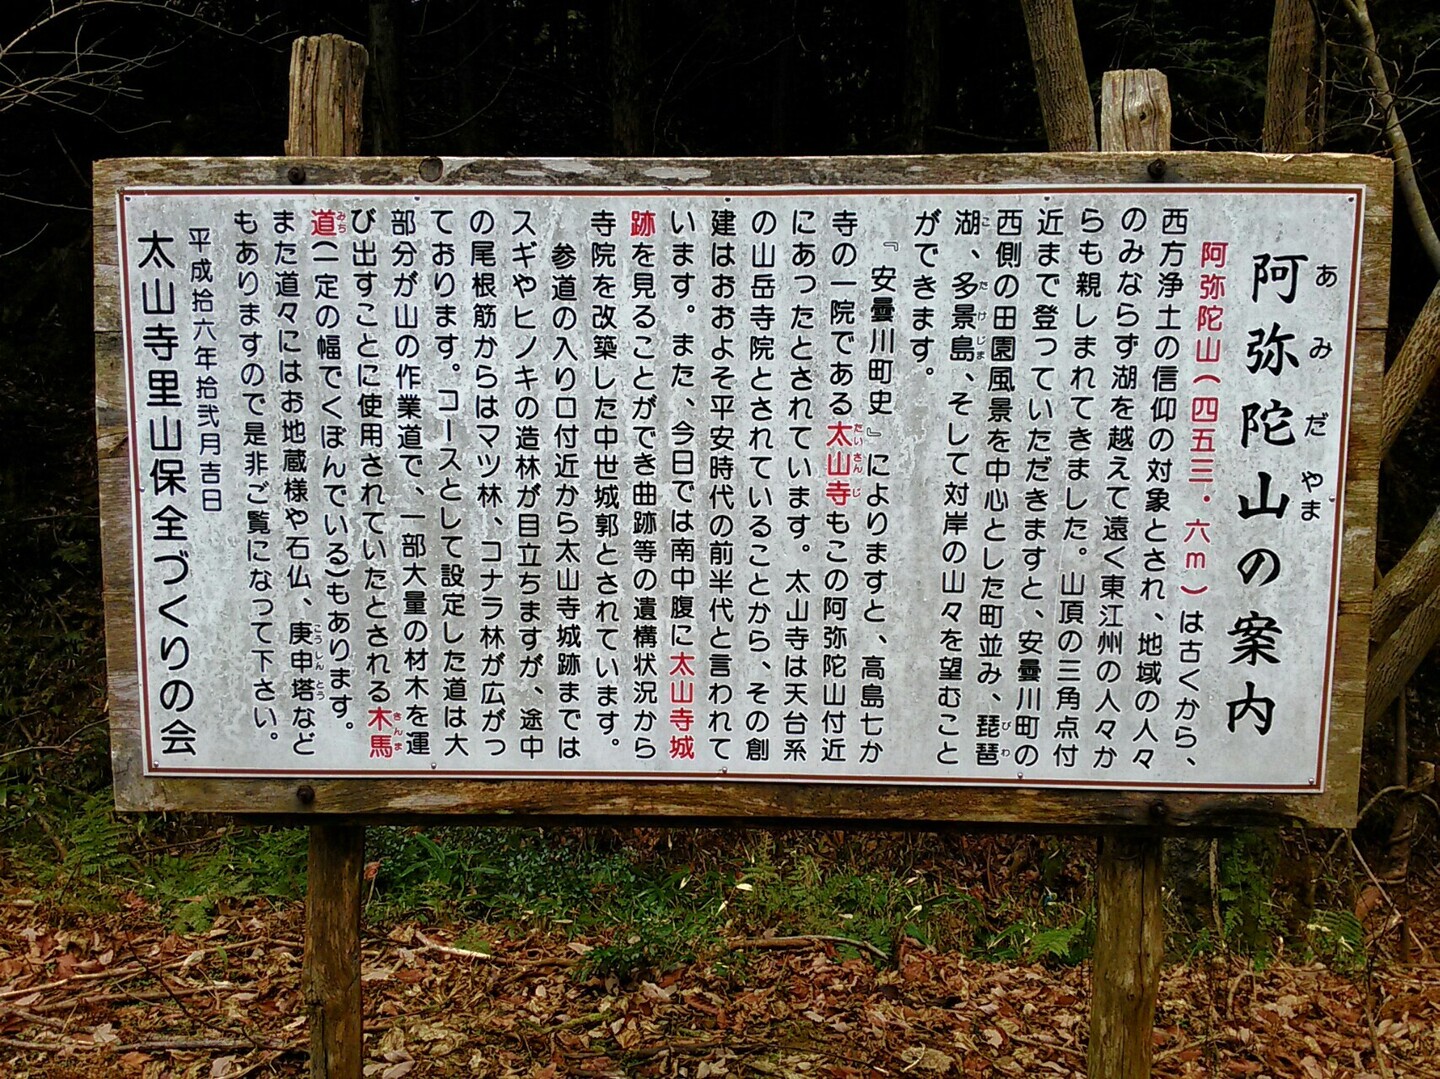 阿弥陀山の案内
あみだやま
阿弥陀山(四五三・六m)は古くから、
西方浄土の信仰の対象とされ、地域の人々
のみならず湖を越えて遠く東江州の人々か
らも親しまれてきました。山頂の三角点付
近まで登っていただきますと、安曇川町の
西側の田園風景を中心とした町並み、琵琶
びわ
湖、多景島、そして対岸の山々を望むこと
こ たけじま
ができます。
『安曇川町史』によりますと、高島七か
寺の一院である太山寺もこの阿弥陀山付近
たいさんじ
にあったとされています。太山寺は天台系
の山岳寺院とされていることから、その創
建はおおよそ平安時代の前半代と言われて
います。また、今日では南中腹に太山寺城
跡を見ることができ曲跡等の遺構状況から
寺院を改築した中世城郭とされています。
参道の入り口付近から太山寺城跡までは
スギやヒノキの造林が目立ちますが、途中
の尾根筋からはマツ林、コナラ林が広がっ
ております。コースとして設定した道は大
部分が山の作業道で、一部大量の材木を運
び出すことに使用されていたとされる木馬
きんま
道(一定の幅でくぼんでいる)もあります。
みち
また道々にはお地蔵様や石仏、庚申塔など
こうしんとう
もありますので是非ご覧になって下さい。
平成拾六年拾弐月吉日
太山寺里山保全づくりの会